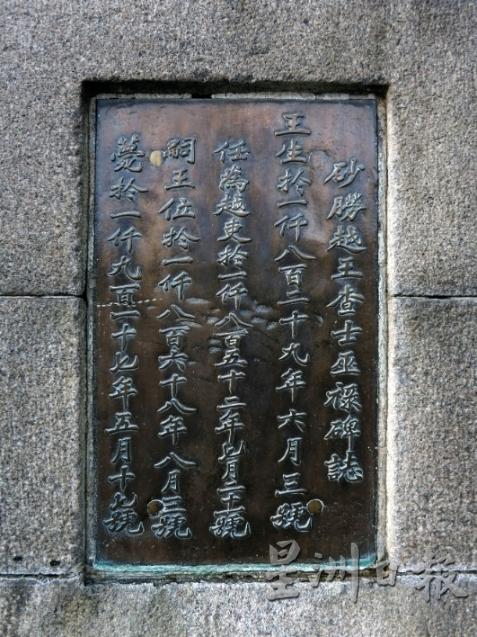 砂勝越王查士巫祿碑誌
王生扵一仟八百二十九年六月三號
任為越吏扵一仟八百五十二年七月二十一號
嗣王位扵一仟八百六十八年八月三號
薨扵一仟九百一十七年五月十七號
星洲日報